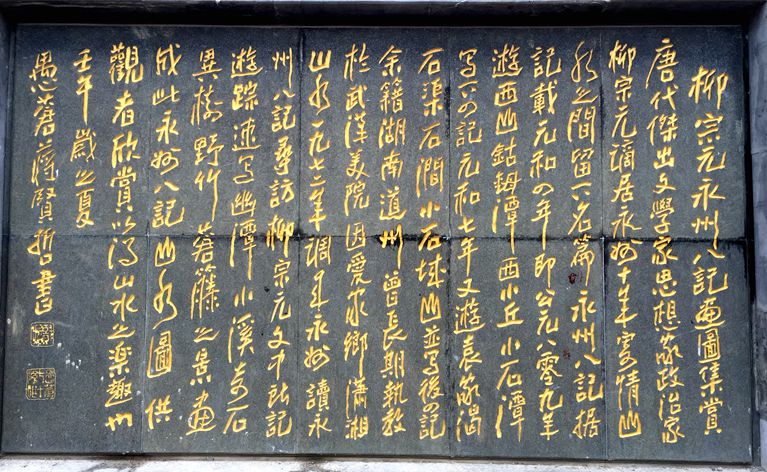 柳宗元永州八記畫圖集賞
唐代傑出文學家思想家政治家
柳宗元謫居永州十年寄情山
水之間留下名篇永州八記據
記載元和四年即公元八零九年
遊西山鈷鉧潭西小丘小石潭
寫下四記元和七年又遊袁家渴
石渠石澗小石城山並寫後四記
余籍湖南道州曾長期執教
於武漢美院因愛家鄉瀟湘
山水一九七二年調來永州讀永
州八記尋訪柳宗元文中所記
遊踪速寫幽潭小溪奇石
異樹野竹蒼籐之景畫
成此永州八記山水圖供
觀者欣賞以得山水之樂趣也
壬午歲之夏
愚蒼蔣賢哲書